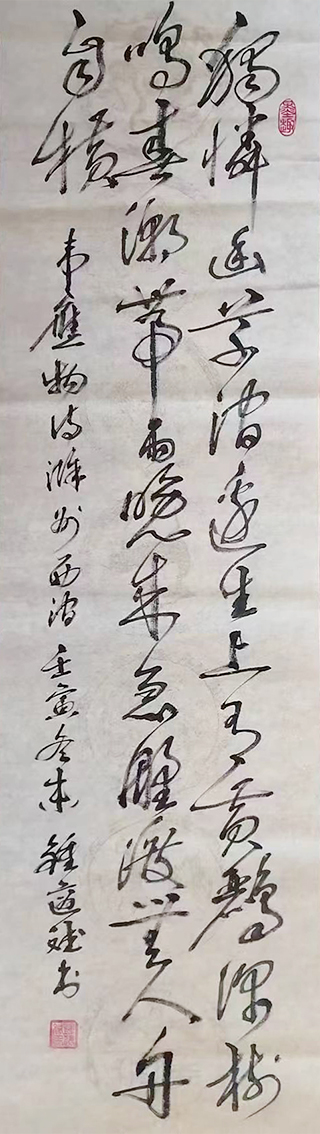 獨憐幽草澗邊生上有黃鸝深樹
鳴春潮帶雨晚來急野渡無人舟
自橫
韋應物詩滁州西澗 壬寅冬末 鍾